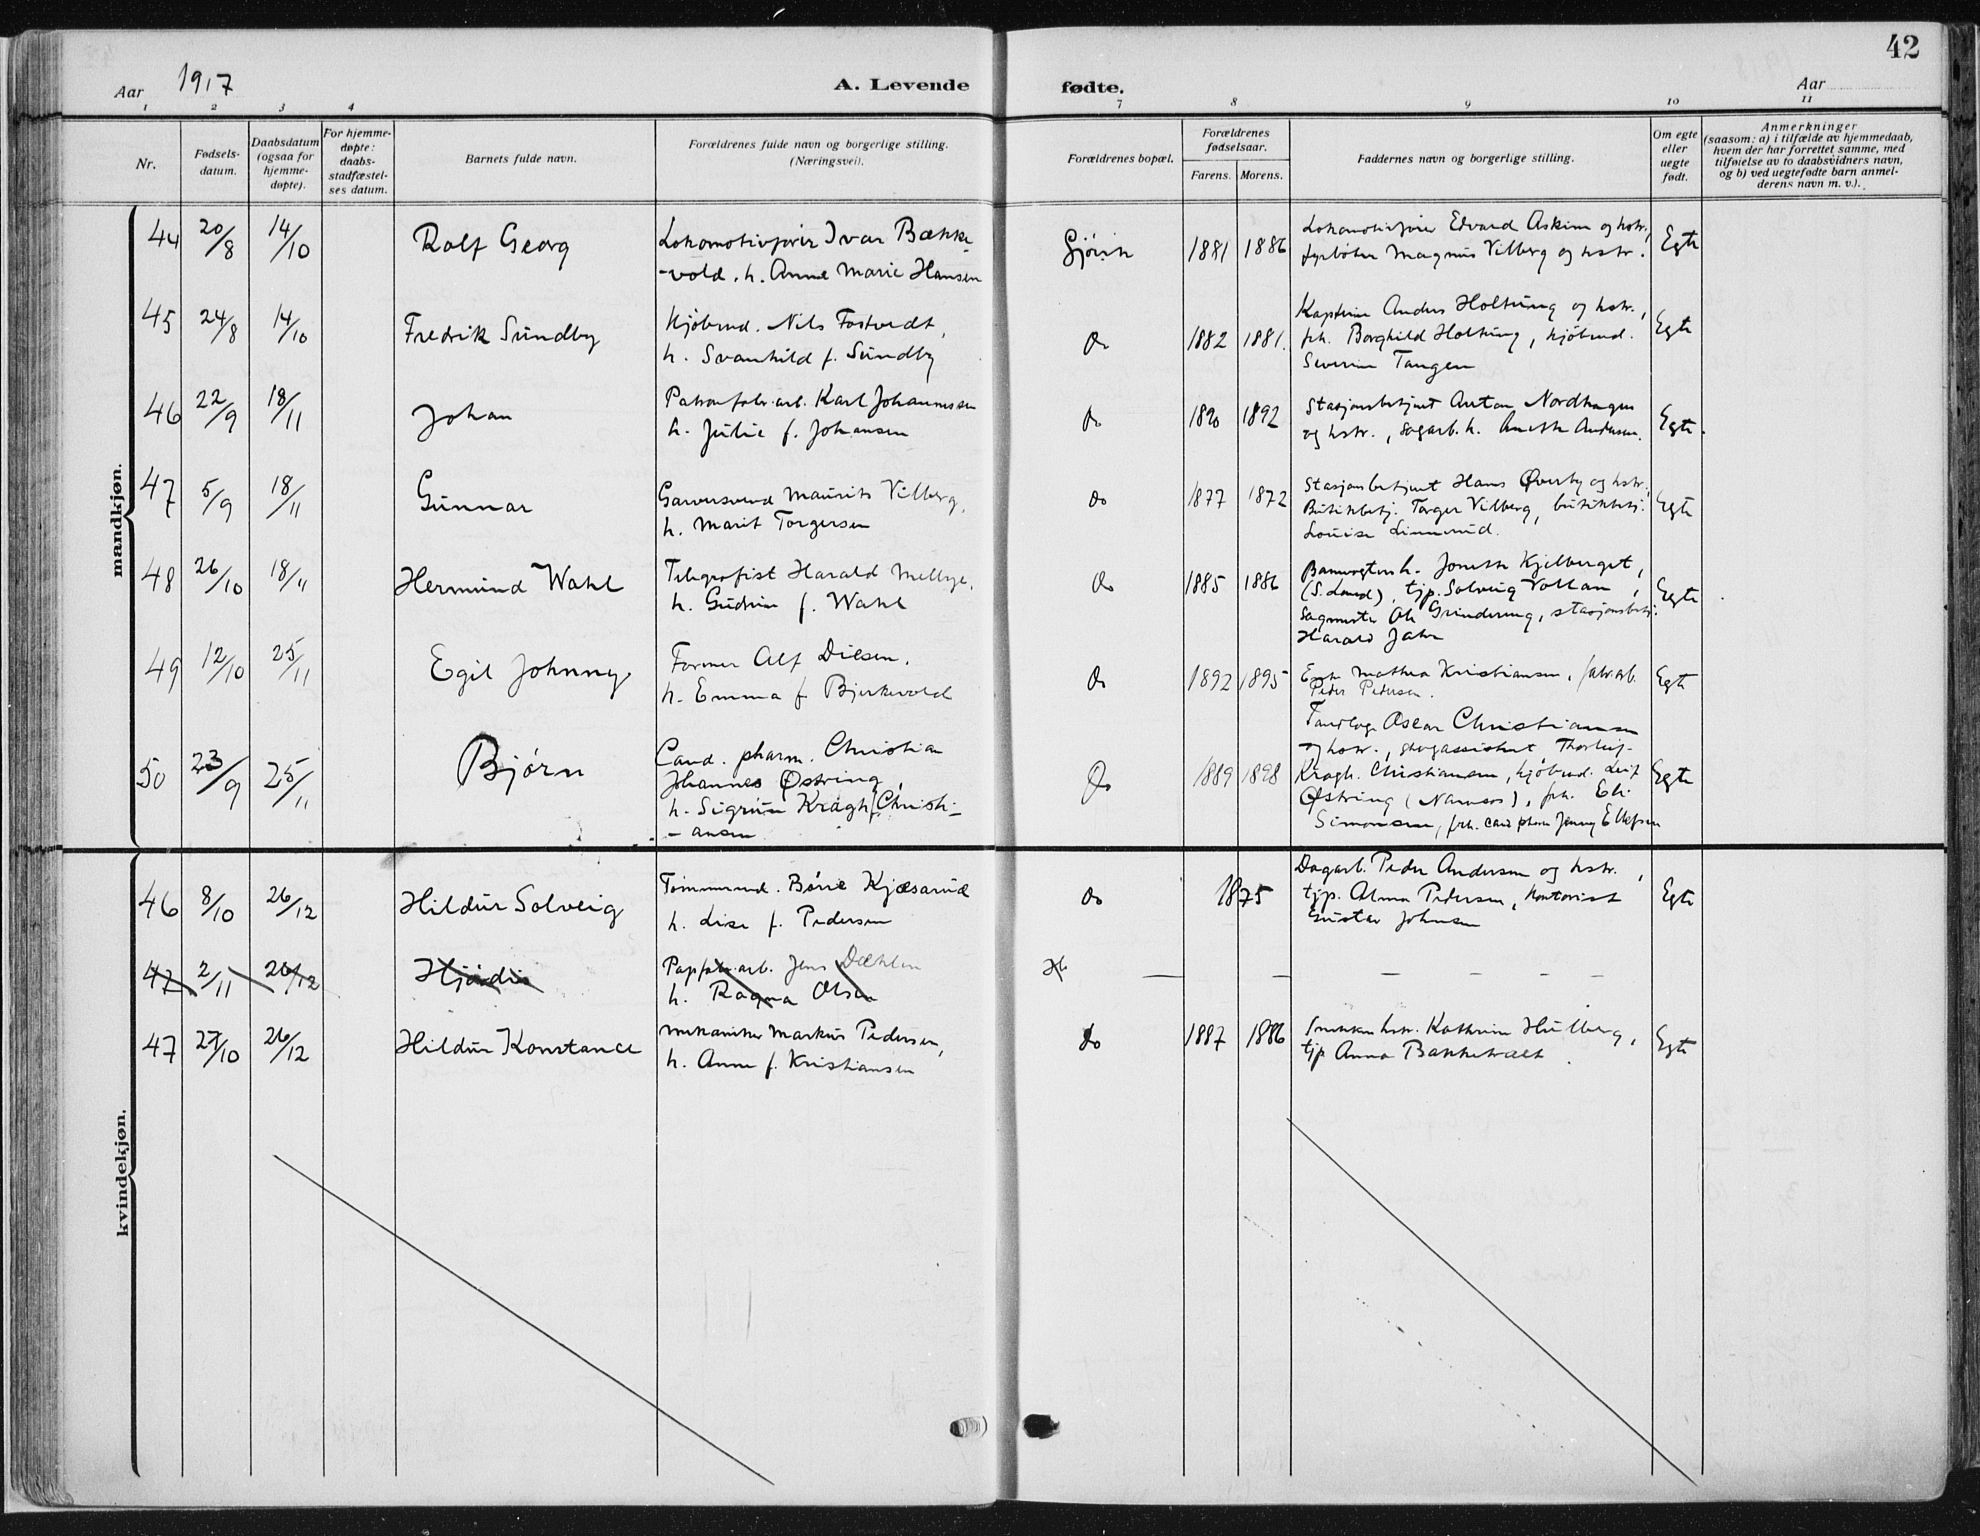 42
Aar 1917
A. Levende fødte.
Aar
1 2 3 4 7 8 9 10 11
Nr.
Fødsels-
datum.
Daabsdatum
(ogsaa for
hjemme-
døpte).
For hjemme-
døpte:
daabs-
stadfæstel-
ses datum.
Barnets fulde navn.
Forældrenes fulde navn og borgerlige stilling.
(Næringsvei).
Forældrenes bopæl.
Forældrenes
fødselsaar.
Farens. Morens.
Faddernes navn og borgerlige stilling.
Om egte
eller
uegte
født.
Anmerkninger
(saasom: a) i tilfælde av hjemmedaab,
hvem der har forrettet samme, med
tilføielse av to daabsvidners navn,
og b) ved uegtefødte barn anmel-
derens navn m. v.).
mandkjøn.
44 20/8 14/10 Rolf Georg
Lokomotivfører Ivar Bække-
-vold. h. Anne Marie Hansen
Gjøvik 1881 1886
Lokomotivfører Edvard Askim og hstr.,
fyrbøter Magnus Vilberg og hstr.
Egte
45 24/8 14/10 Fredrik Sundby
Kjøbmd. Nils Fostvedt,
h. Svanhild f. Sundby
Do 1882 1881.
Kaptein Anders Holtung og hstr.,
frk. Borghild Holtung, kjøbmd.
Severin Tangen
Egte
46 22/9 18/11 Johan
Patronfabr.arb. Karl Johannessen
h. Julie f. Johansen
do 1890 1892
Stasjonsbetjent Anton Nordhagen
og hstr., sagarb. h. Anette Andersen.
Egte.
47 5/9 18/11 Gunnar
Garversvend Maurits Vilberg,
h. Marit Torgersen
do 1877 1872
Stasjonsbetjent Hans Øverby og hstr.,
Butikbetj. Torger Vilberg, butikbetj.
Louise Linnerud.
Egte
48 26/10 18/11 Hermund Wahl
Telegrafist Harald Mellbye,
h. Gudrun f. Wahl
do 1885 1886
Banevogters h. Jonette Kjelberget,
(S. Land), tjp. Solveig Vollan,
Sagmester Ole Grindereng, stasjonsbetj.
Harald Jahr
Egte
49 12/10 25/11 Egil Johnny
Former Alf Dilsen.
h. Emma f. Bjerkevold
do 1892 1895
Enke Mathea Kristiansen, fabr.arb.
Peder Pedersen.
Egte
50 23/9 25/11 Bjørn
Cand. pharm. Christian
Johannes Østring,
h. Sigrun Kragh f. Christi-
-ansen
Do 1889 1898
Tandlæge Oscar Christiansen
og hstr., Thorleif
Kragh. Christiansen, kjøbmd. Leif
Østring (Namsos), frk. Eli
Simonsen, frk. cand pharm Jenny Ellefsen
Egte
kvindekjøn.
46 8/10 26/12 Hildur Solveig
Tømmermd. Børre Kjæsarud
h. Lise f. Pedersen
do 1875
Dagarb. Peder Andersen og hstr.,
tjp. Alma Pedersen, kontorist
Gustav Johnsen
Egte
47 2/11 26/12 Hjørdis
Papfabr.arb. Jens Dæhlen
h. Ragna Olsen
47 27/10 26/12 Hildur Konstance
mekaniker Markus Pedersen,
h. Anne f. Kristiansen
do 1887 1886
hstr. Kathrine Hulberg,
tjp Anna Bakketræet.
Egte